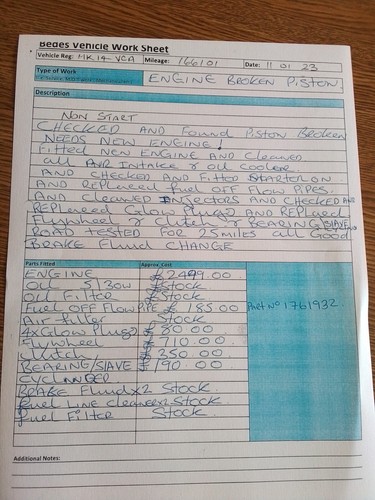 Bedes Vehicle Work Sheet
Vehicle Reg: MK14 VGA Mileage: 166101 Date: 11 01 23
Type of Work
ENGINE BROKEN PISTON
Description
NON START
CHECKED AND Found Piston Broken
NEEDS NEW ENGINE!
Fitted NEW ENGINE AND Cleaned
all AIR Intake & oil cooler
AND CHECKED AND Fitted STARTER ON
AND REPlaced fuel OFF Flow PIPES.
AND CLEANED INJECTORS AND CHECKED AND
REPlaced Glow Plugs AND REPlaced
Flywheel & Clutch & BEARING/SlAVE
ROAD TESTED FOR 25 MILES all Good
BRAKE Fluid CHANGE
Parts Fitted Approx. Cost
ENGINE £2499.00
OIL 5/30W Stock
OIL FIlter Stock
Fuel OFF Flow PIPE £185.00 Part No 1761932.
Air filter Stock
4xGlow Plugs £80.00
Flywheel £710.00
Clutch £350.00
BEARING/SlAVE £190.00
CYCLANDER
BRAKE Fluid x2 Stock.
Fuel LINE Cleaner x2 Stock
Fuel FILTER Stock.
Additional Notes: